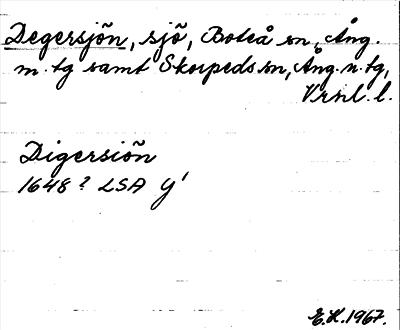 Degersjön, sjö, Boteå sn, Ång.
m. tg samt Skorpeds sn, Ång. n. tg,
Vrnl. l.
Digersiön
1648? LSA Y'
E.H. 1967.